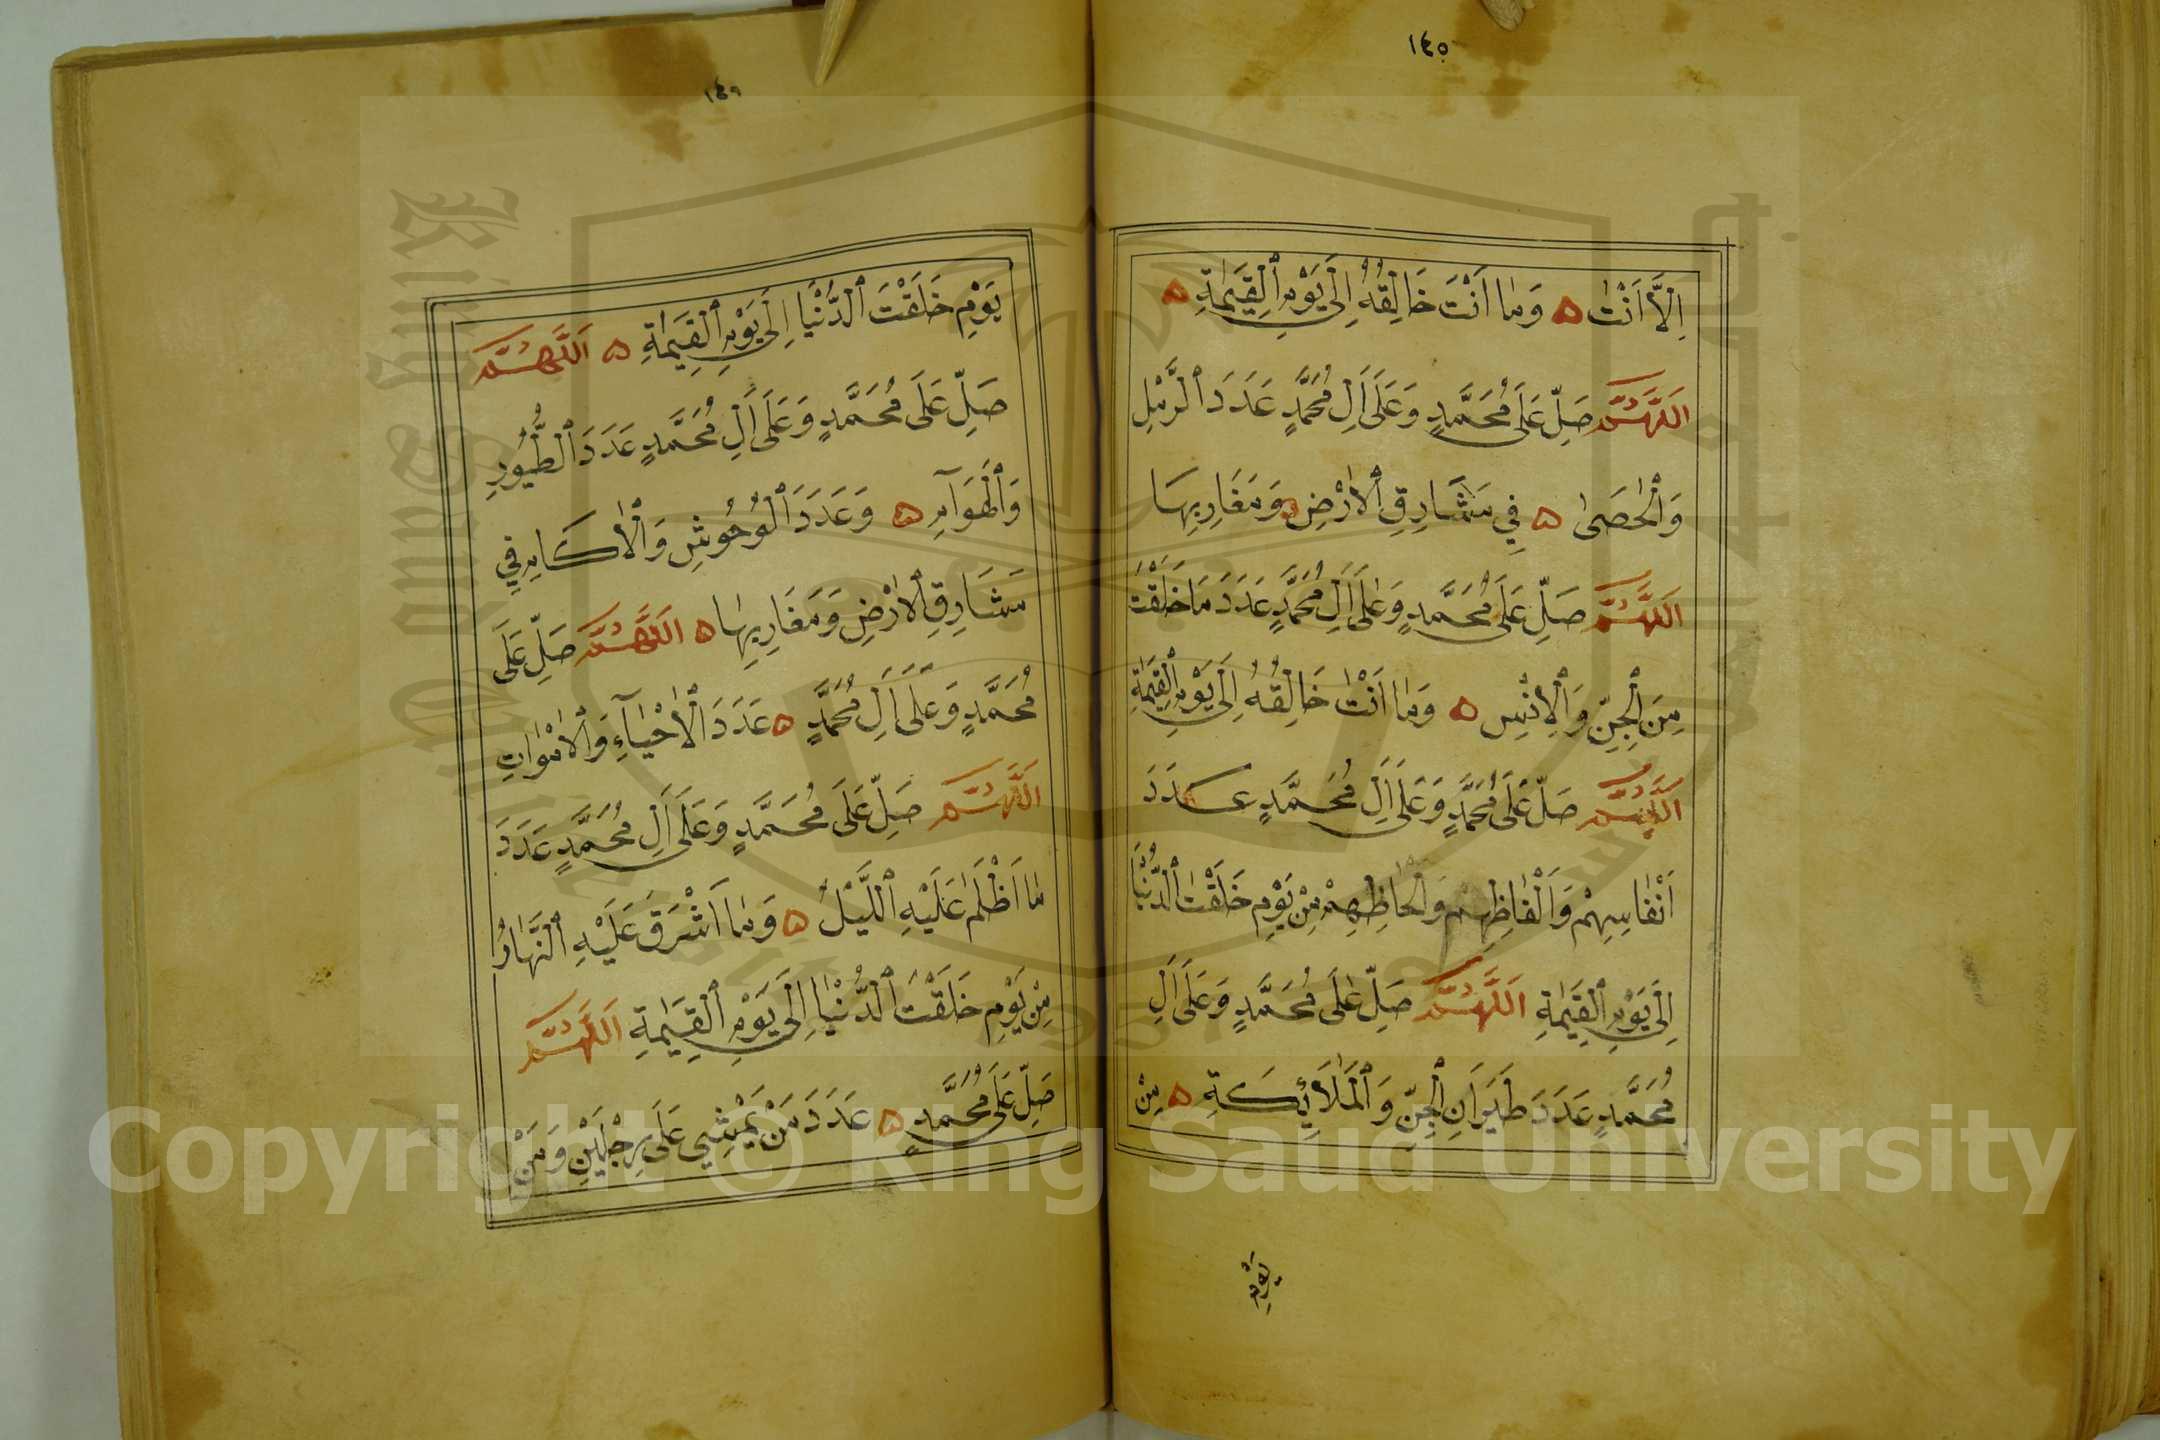 ١٤٥
اِلَّا اَنْتَ وَمَا اَنْتَ خَالِقُهُ اِلَى يَوْمِ الْقِيٰمَةِ
اَللّٰهُمَّ صَلِّ عَلَى مُحَمَّدٍ وَعَلَى اَلِ مُحَمَّدٍ عَدَدَ الرَّمْلِ
وَالْحَصَى فِي مَشَارِقِ الْاَرْضِ وَمَغَارِبِهَا
اَللّٰهُمَّ صَلِّ عَلَى مُحَمَّدٍ وَعَلَى اَلِ مُحَمَّدٍ عَدَدَ مَا خَلَقْتَ
مِنَ الْجِنِّ وَالْاِنْسِ وَمَا اَنْتَ خَالِقُهُ اِلَى يَوْمِ الْقِيٰمَةِ
اَللّٰهُمَّ صَلِّ عَلَى مُحَمَّدٍ وَعَلَى اَلِ مُحَمَّدٍ عَدَدَ
اَنْفَاسِهِمْ وَاَلْفَاظِهِمْ وَاَلْحَاظِهِمْ مِنْ يَوْمِ خَلَقْتَ الدُّنْيَا
اِلَى يَوْمِ الْقِيٰمَةِ اَللّٰهُمَّ صَلِّ عَلَى مُحَمَّدٍ وَعَلَى اَلِ
مُحَمَّدٍ عَدَدَ طَيَرَانِ الْجِنِّ وَالْمَلَائِكَةِ مِنْ
يَوْمِ
١٤٦
يَوْمِ خَلَقْتَ الدُّنْيَا اِلَى يَوْمِ الْقِيٰمَةِ اَللّٰهُمَّ
صَلِّ عَلَى مُحَمَّدٍ وَعَلَى اَلِ مُحَمَّدٍ عَدَدَ الطُّيُورِ
وَالْهَوَآمِ وَعَدَدَ الْوُحُوشِ وَالْاٰكَامِ فِي
مَشَارِقِ الْاَرْضِ وَمَغَارِبِهَا اَللّٰهُمَّ صَلِّ عَلَى
مُحَمَّدٍ وَعَلَى اَلِ مُحَمَّدٍ عَدَدَ الْاَحْيَآءِ وَالْاَمْوَاتِ
اَللّٰهُمَّ صَلِّ عَلَى مُحَمَّدٍ وَعَلَى اَلِ مُحَمَّدٍ عَدَدَ
مَا اَظْلَمَ عَلَيْهِ اللَّيْلُ وَمَا اَشْرَقَ عَلَيْهِ النَّهَارُ
مِنْ يَوْمِ خَلَقْتَ الدُّنْيَا اِلَى يَوْمِ الْقِيٰمَةِ اَللّٰهُمَّ
صَلِّ عَلَى مُحَمَّدٍ عَدَدَ مَنْ يَمْشِي عَلَى رِجْلَيْنِ وَمَنْ
Copyright © King Saud University